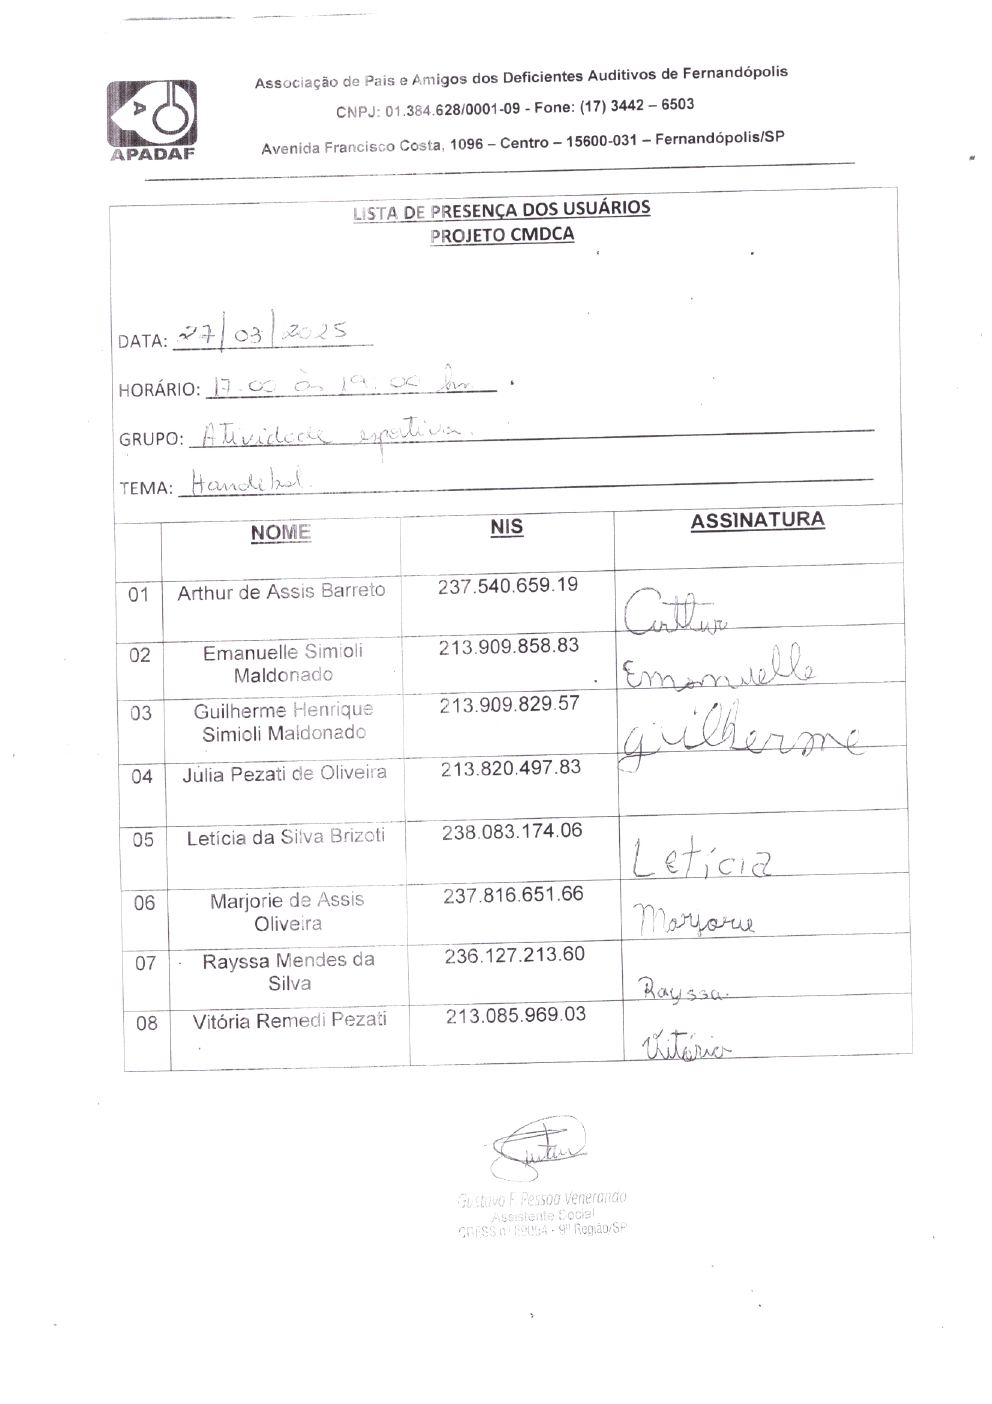 Associação de Pais e Amigos dos Deficientes Auditivos de Fernandópolis
CNPJ: 01.384.628/0001-09 - Fone: (17) 3442 – 6503
Avenida Francisco Costa, 1096 – Centro – 15600-031 – Fernandópolis/SP
APADAF
LISTA DE PRESENÇA DOS USUÁRIOS
PROJETO CMDCA
DATA: 27/03/2025
HORÁRIO: 17.00 às 19.00 hs
GRUPO: Atividade esportiva.
TEMA: Handebol.
NOME NIS ASSINATURA
01 Arthur de Assis Barreto 237.540.659.19 Arthur
02 Emanuelle Simioli Maldonado 213.909.858.83 Emanuelle
03 Guilherme Henrique Simioli Maldonado 213.909.829.57 guilherme
04 Júlia Pezati de Oliveira 213.820.497.83
05 Letícia da Silva Brizoti 238.083.174.06 Letícia
06 Marjorie de Assis Oliveira 237.816.651.66 Marjorie
07 Rayssa Mendes da Silva 236.127.213.60 Rayssa.
08 Vitória Remedi Pezati 213.085.969.03 Vitória
Gustavo F. Pessoa Venerando
Assistente Social
CRESS nº - 9ª Região/SP